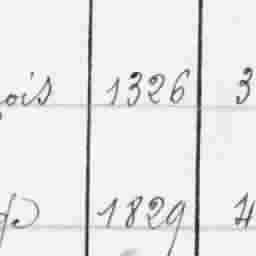 ois 1326 3
1829 4